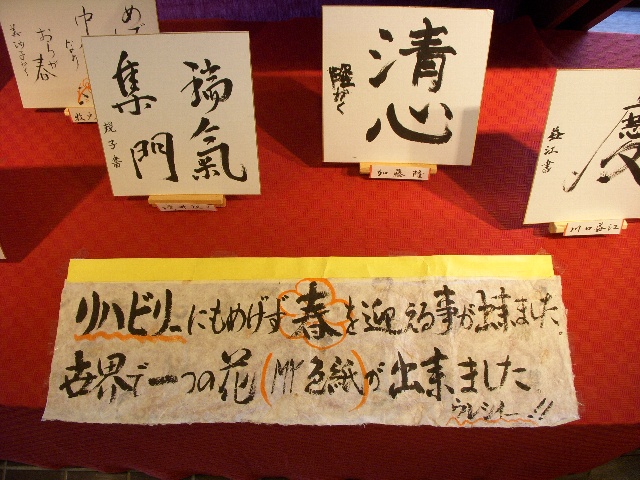 めで
中
なり
おらが春
瑞氣
集門
清心
隆かく
加藤 隆
慶
益江書
川口益江
リハビリーにもめげず春を迎える事が出来ました
世界で一つの花(My色紙)が出来ました
ウレシイー!!